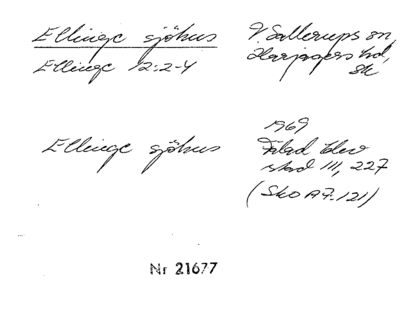 Ellinge sjöhus
V. Sallerups sn,
Ellinge 12:2-4
Harjagers hd,
Sk
1969
Ellinge sjöhus
stad III, 227
(Sko AF. 121)
Nr 21677